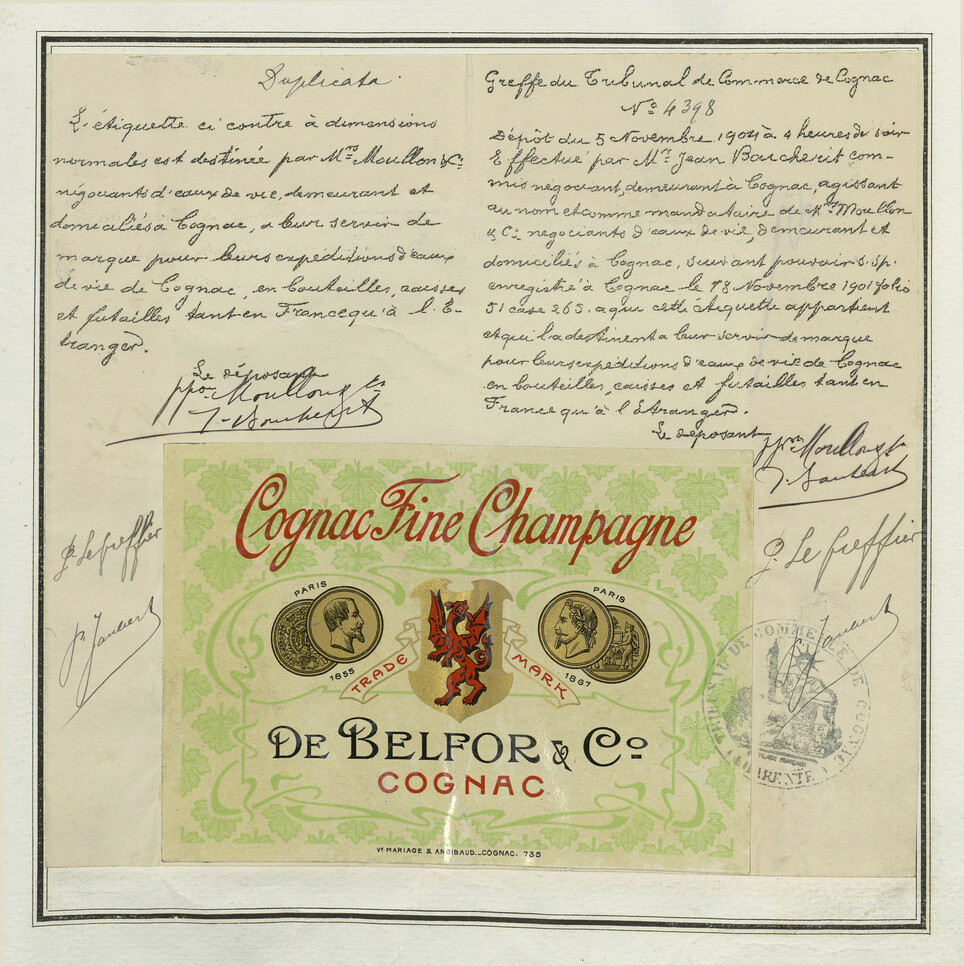 Duplicata.
L'étiquette ci contre à dimensions
normales est destinée par Mrs Moullon & Cie
négociants d'eaux de vie, demeurant et
domiciliés à Cognac, a leur servir de
marque pour leurs expéditions d'eaux
de vie de Cognac, en bouteilles, caisses
et futailles tant en France qu'à l'E-
tranger.
Le déposant
ppon Moullon & Cie
Greffe du Tribunal de Commerce de Cognac
No 4398
Dépôt du 5 Novembre 1904 à 4 heures du soir
Effectué par Mr Jean Boucherit com-
mis négociant, demeurant à Cognac, agissant
au nom et comme mandataire de Mrs Moullon
& Cie négociants d'eaux de vie, demeurant et
domiciliés à Cognac, suivant pouvoir s. sp.
enregistré à Cognac le 18 Novembre 1901 folio
51 case 265. a qui cette étiquette appartient
et qui la destinent a leur servir de marque
pour leurs expéditions d'eaux de vie de Cognac
en bouteilles, caisses et futailles tant en
France qu'à l'Etranger.
Le déposant
ppon Moullon & Cie
P. Le Greffier
P. Le Greffier
Cognac Fine Champagne
PARIS
1855
PARIS
1867
TRADE MARK
DE BELFOR & Co
COGNAC
Vve MARIAGE & ANGIBAUD._COGNAC. 735
TRIBUNAL DE COMMERCE DE COGNAC
(CHARENTE)